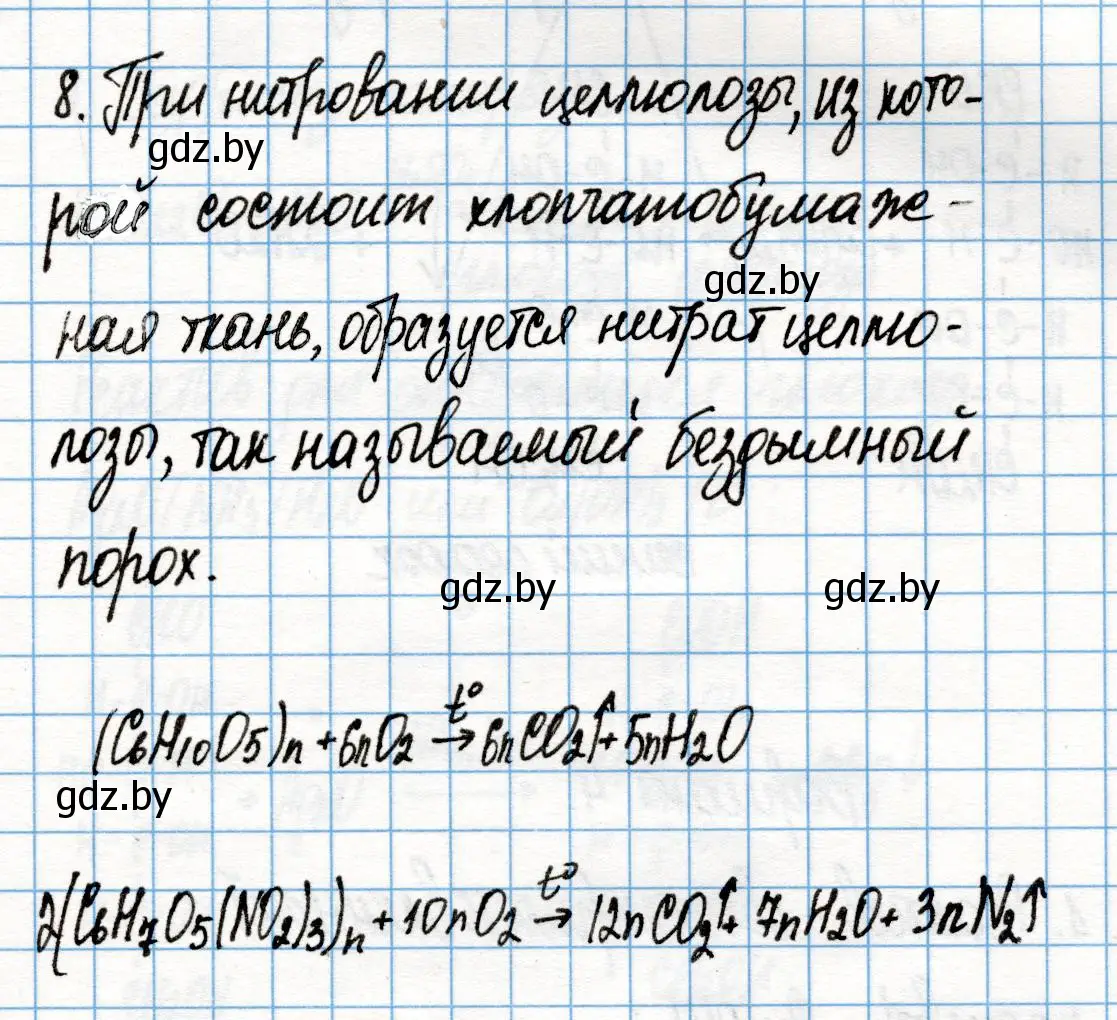 8. При нитровании целлюлозы, из кото-
gdz.by
рой состоит хлопчатобумаж-
gdz.by
ная ткань, образуется нитрат целлю-
лозы, так называемый бездымный
порох.
gdz.by gdz.by
(C6H10O5)n + 6nO2 t° → 6nCO2↑ + 5nH2O
gdz.by
2(C6H7O5(NO2)3)n + 10nO2 t° → 12nCO2↑ + 7nH2O + 3nN2↑